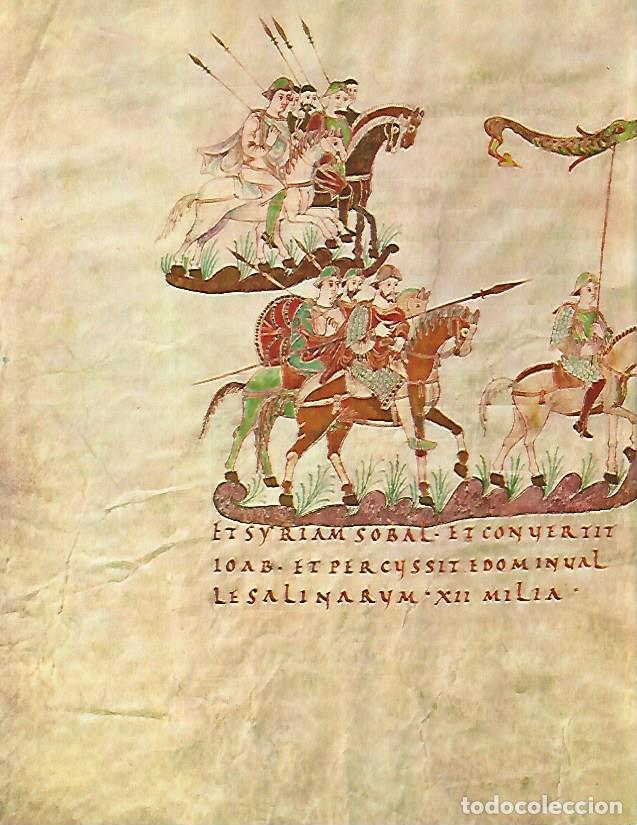 ET SYRIAM SOBAL · ET CONVERTIT
IOAB · ET PERCVSSIT EDOM IN VAL
LE SALINARVM · XII MILIA ·
todocoleccion
todocoleccion.net